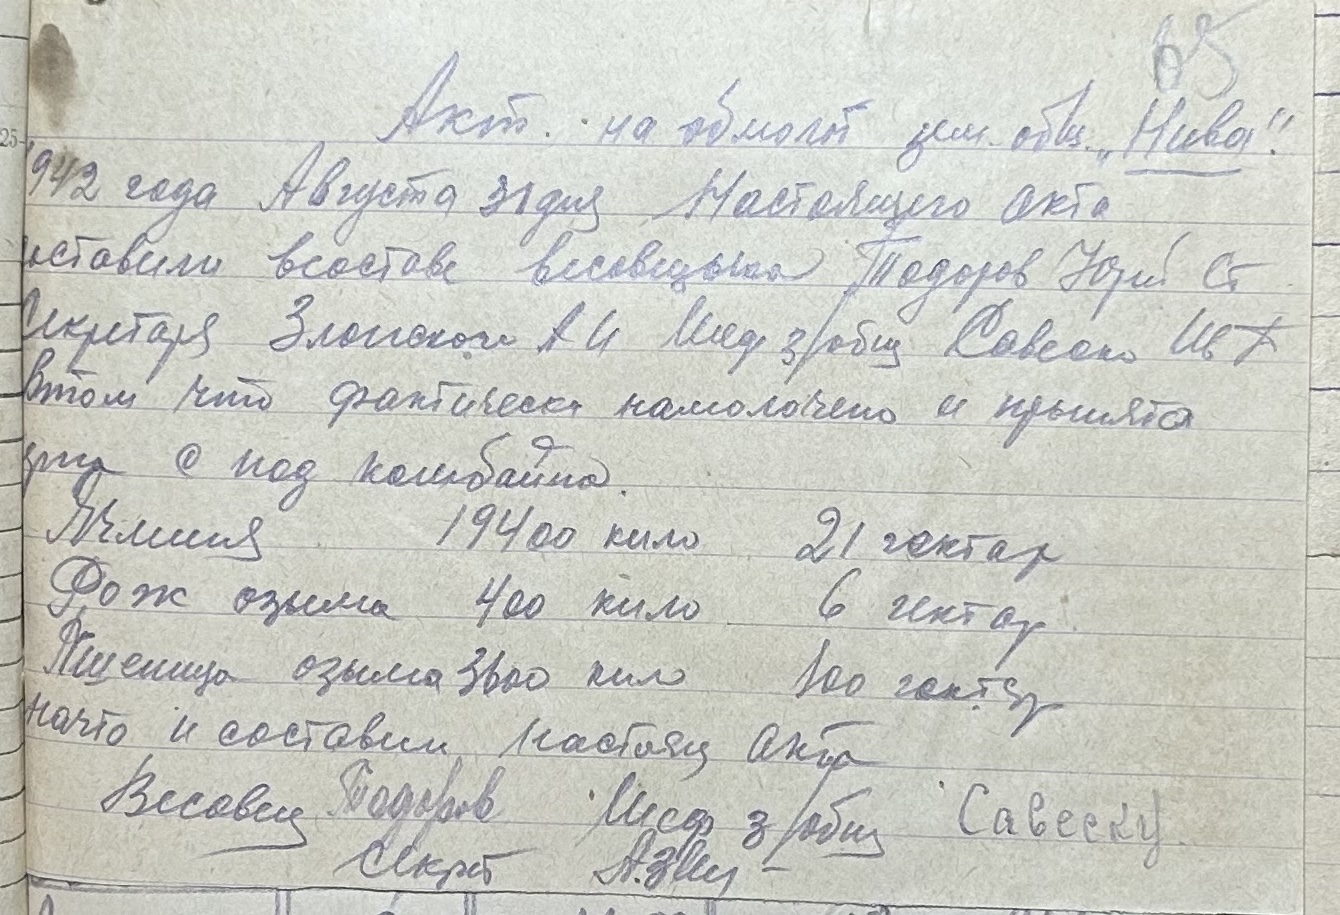 65
Акт. на обмолот зем. общ. „Нива“.
1942 года Августа 31 дня Настоящего акта
составили всоставе весовщика Тодоров Юрий Ст
Секретаря А И Шеф з/общ Савеско
Втом что фактически намолочено и прынята
с под комбайна.
Ячминя 19400 кило 21 гектар
Рож озыма 400 кило 6 гектар
Пшеница озыма 3600 кило 100 гектар
начто и составим настоящ акта
Весовщ Тодоров Шеф з/общ Савеску.
Секрт